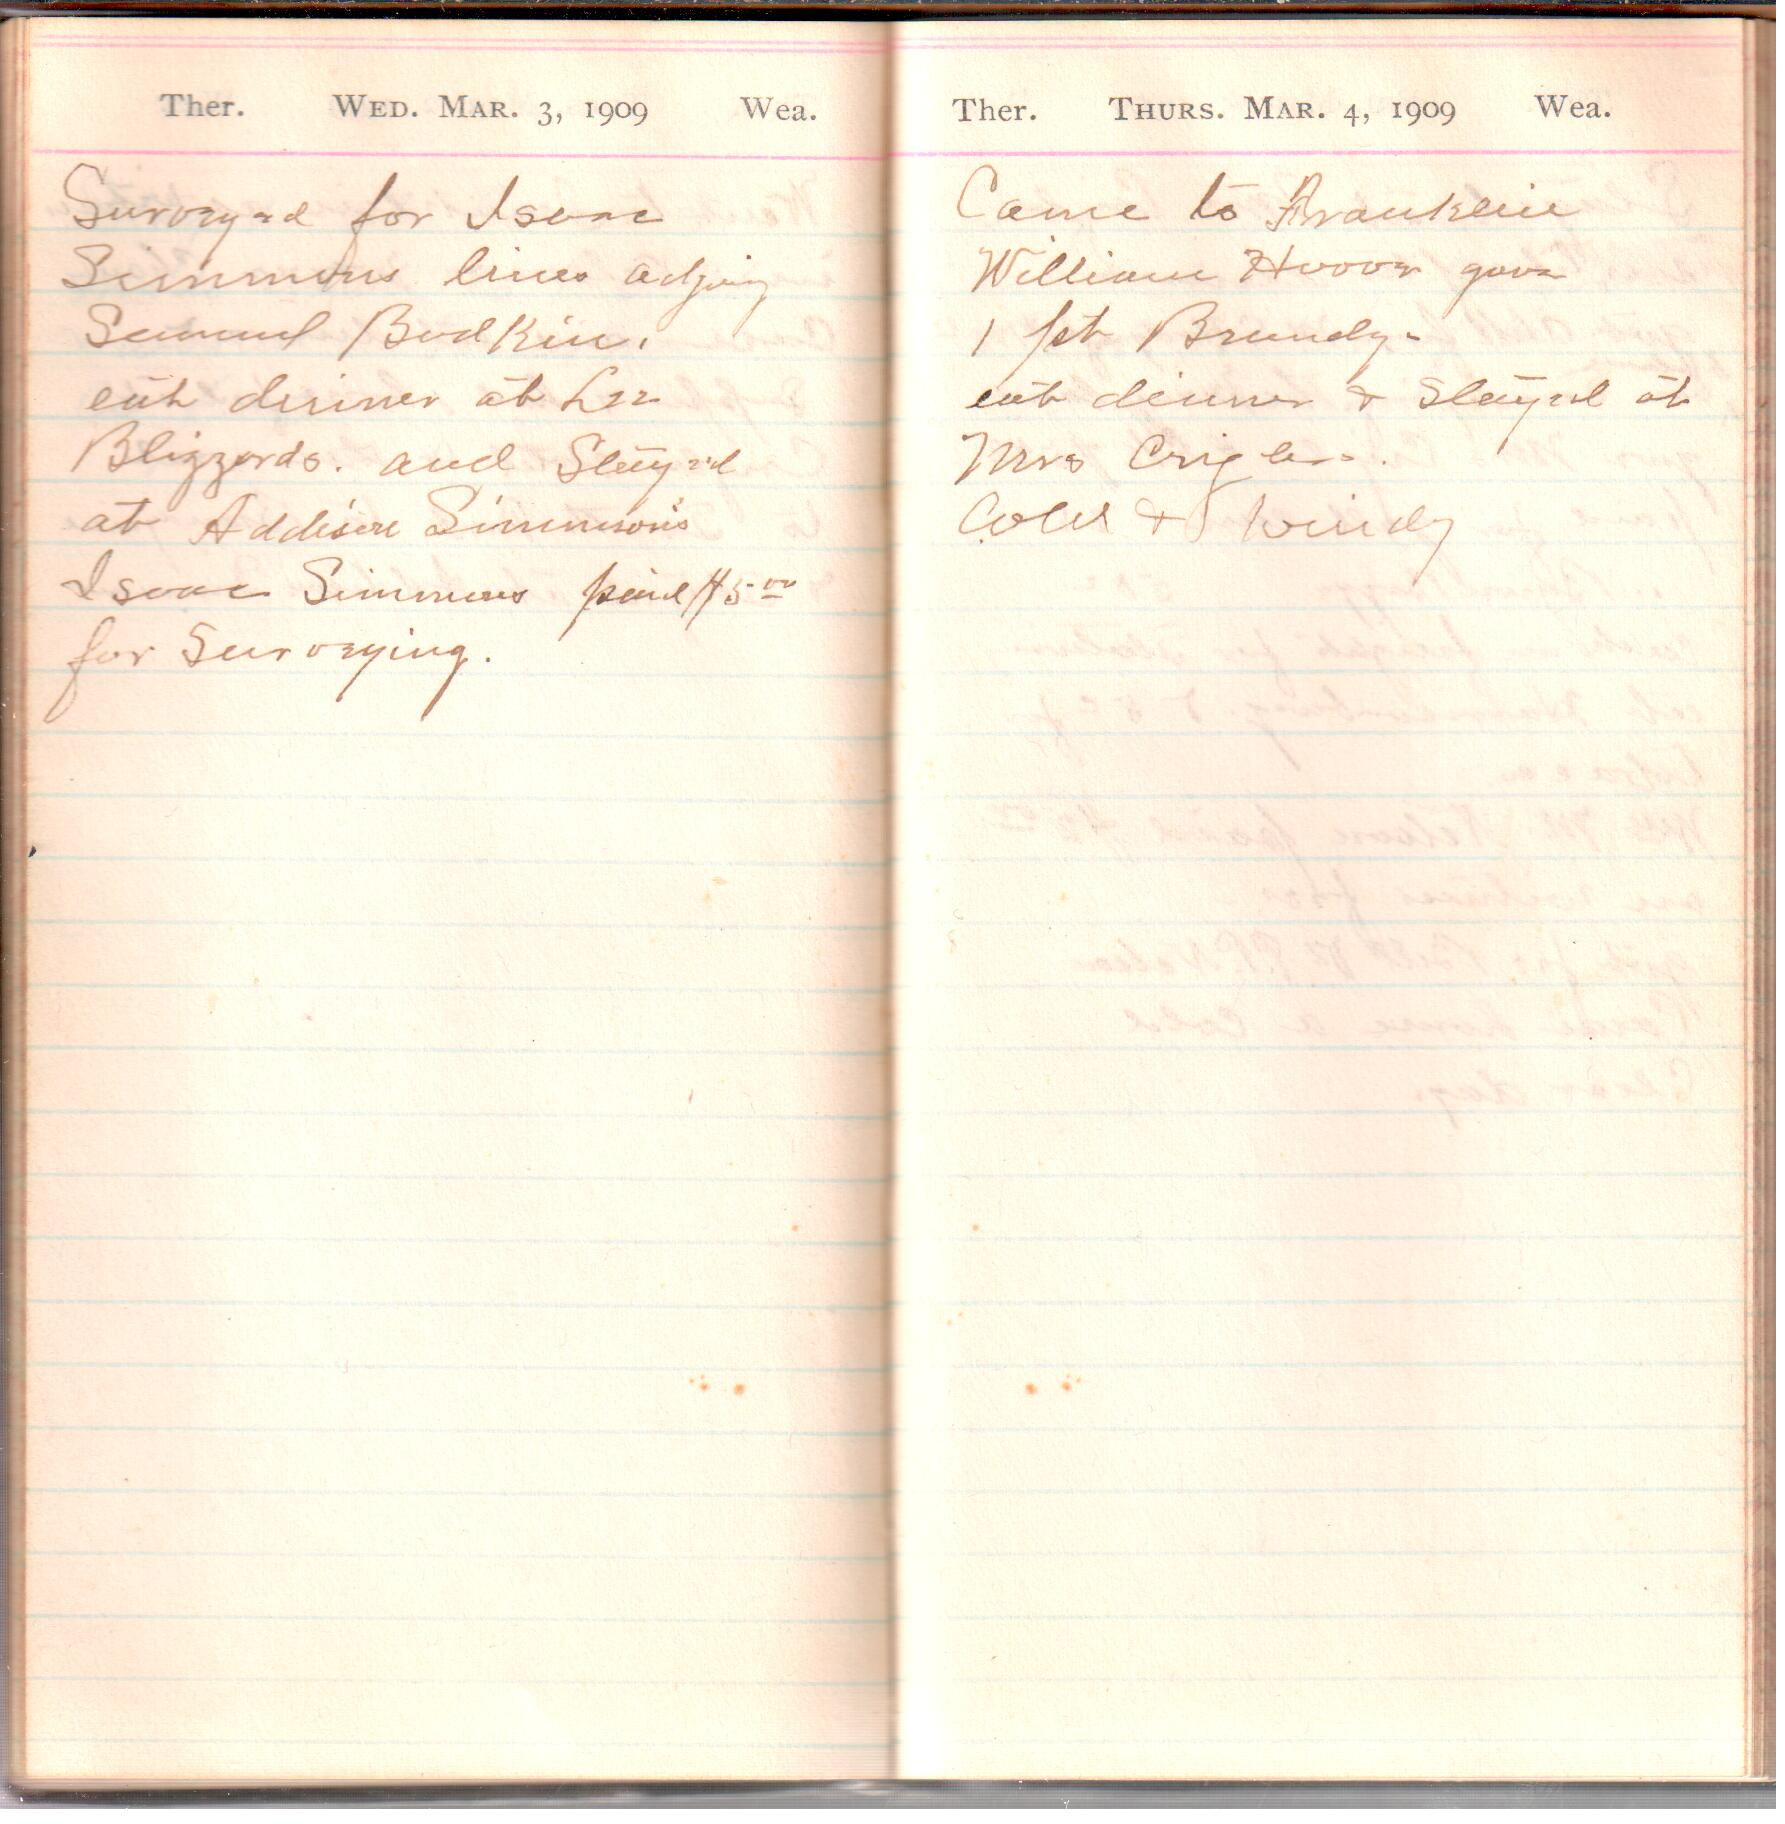 Ther. WED. MAR. 3, 1909 Wea.
Surveyed for Isaac
Simmons lines adjing
Samuel Bodkin.
eat dinner at Lee
Blizzards. and Stayed
at Addison Simmons
Isaac Simmons paid $5.00
for Surveying.
Ther. THURS. MAR. 4, 1909 Wea.
Came to Franklin
William Hoover gave
1 pt Brandy.
eat dinner & Stayed at
Mrs Criglers.
Cold & Windy